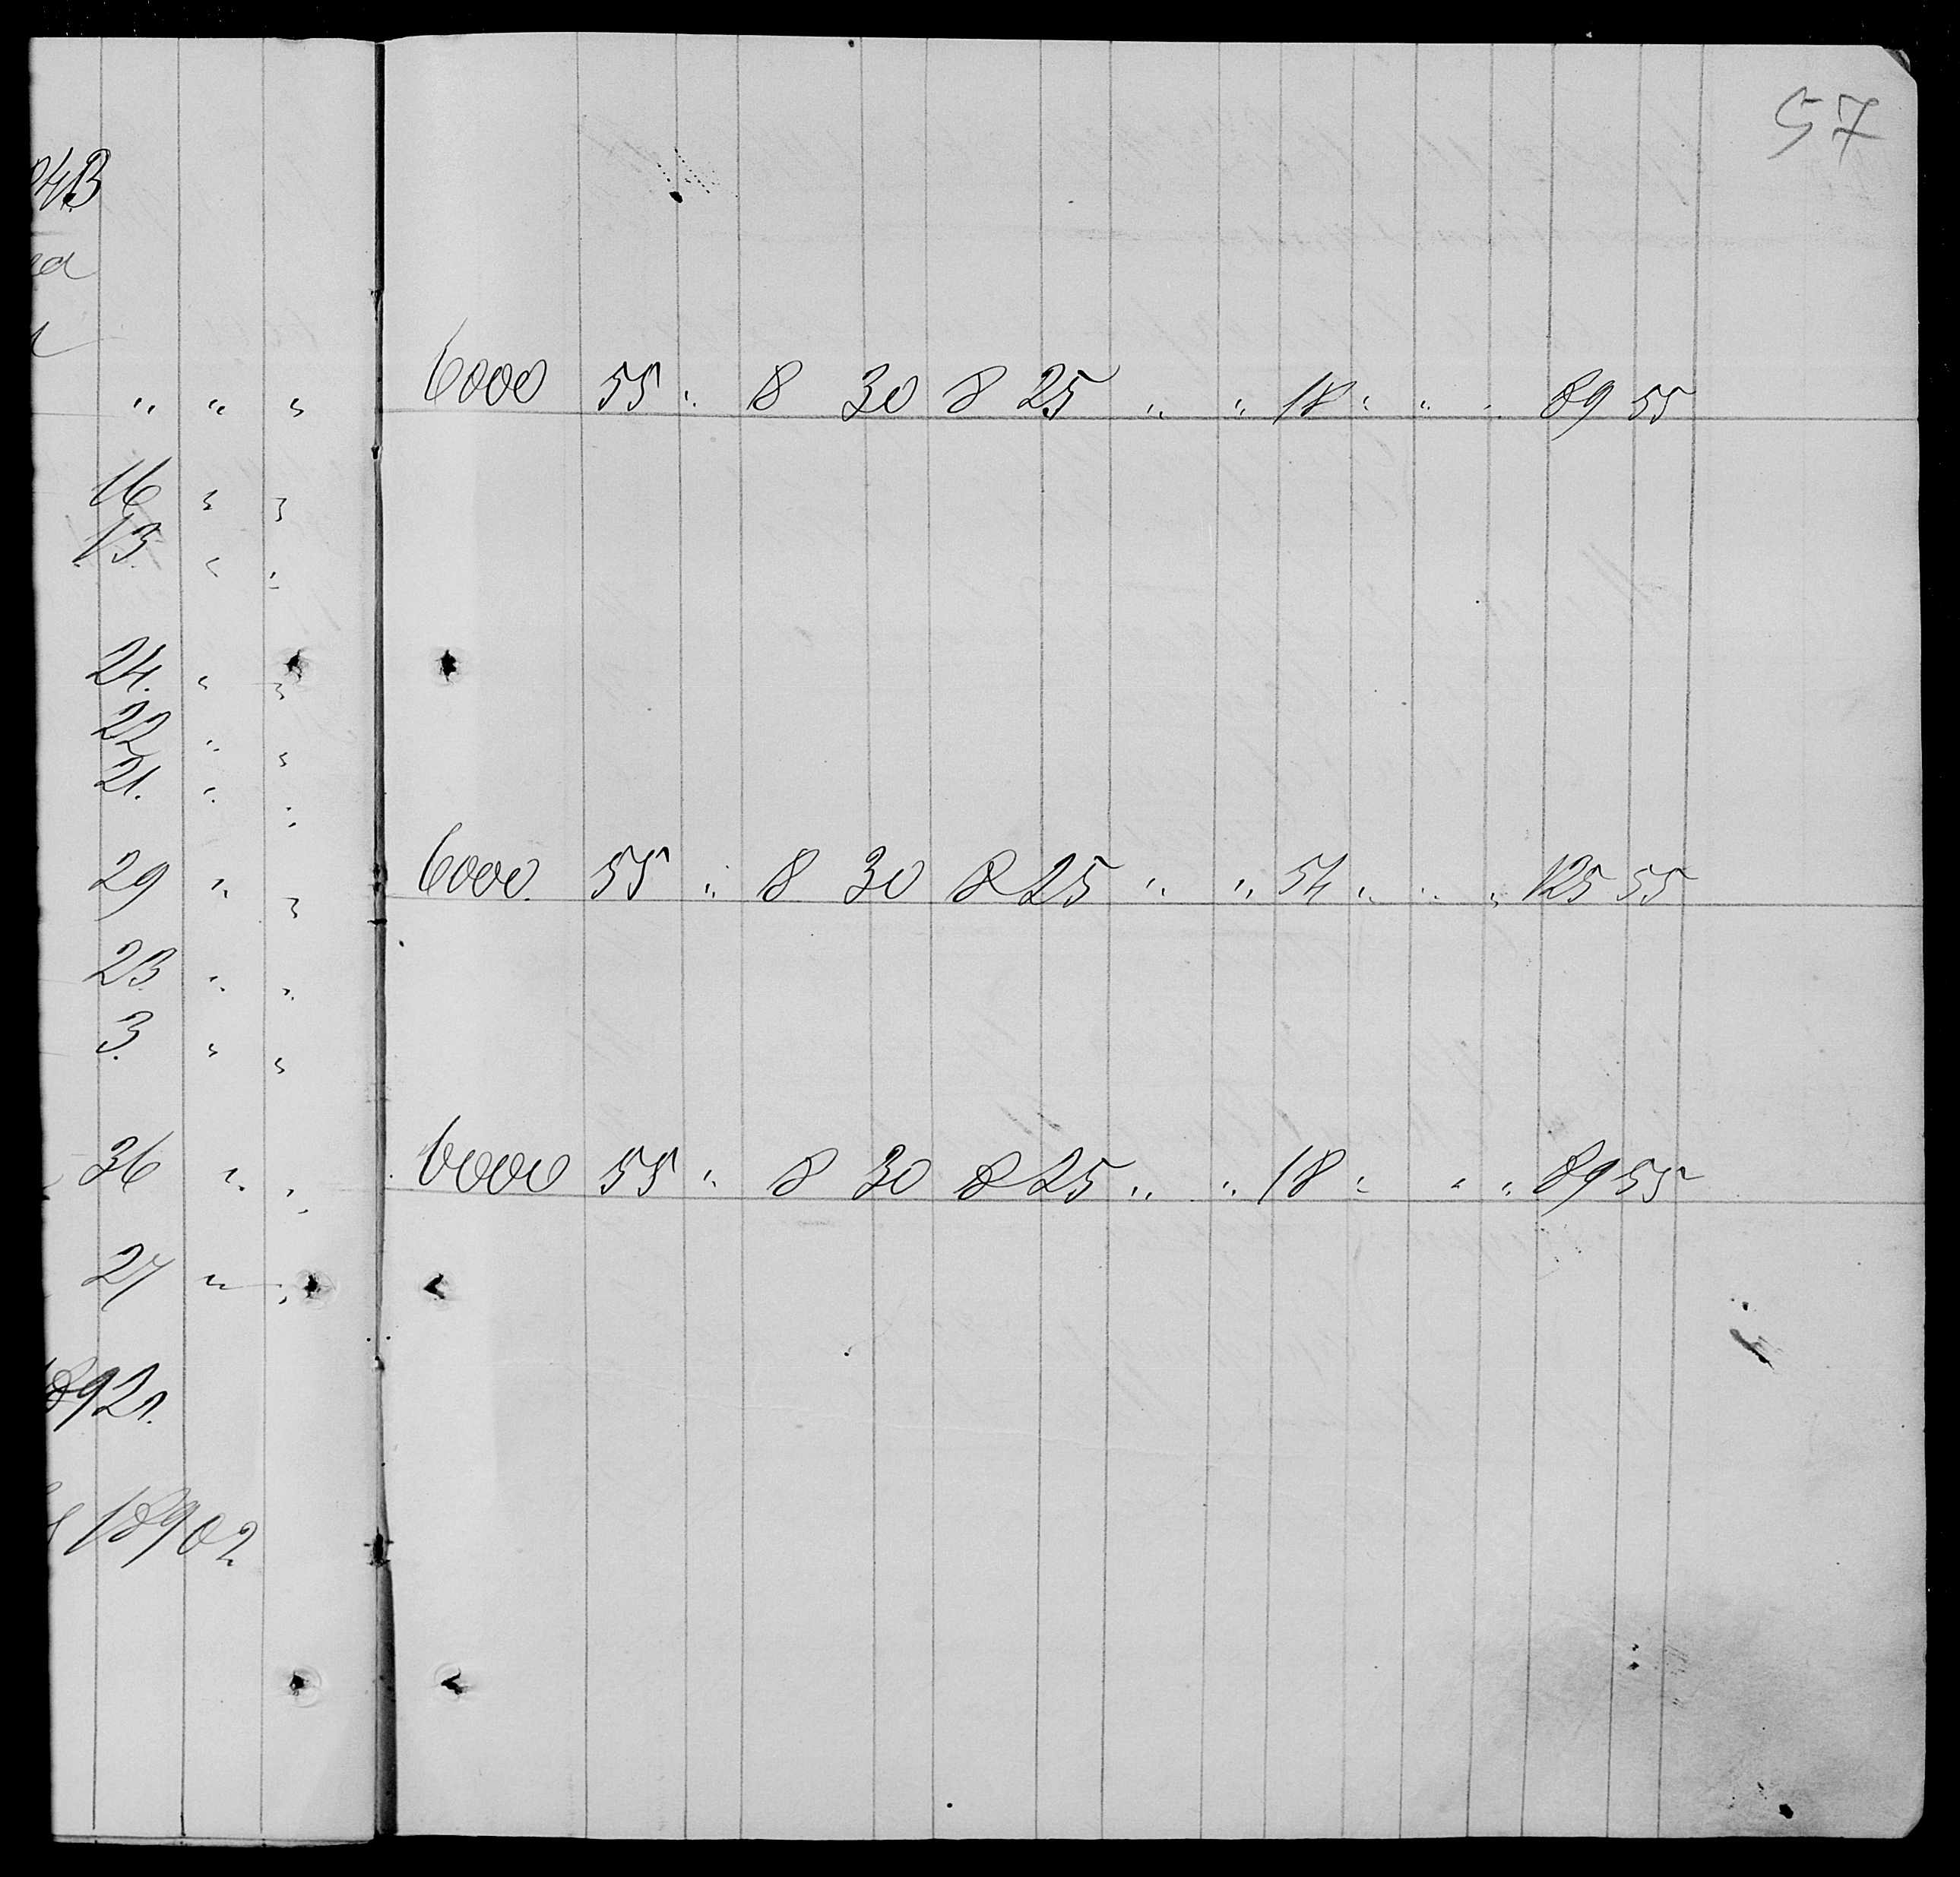 57
" " " 6000 55 " 8 30 8 25 " " 18 " " " 89 55
16 " "
13. " "
24. " "
22 " "
21. " "
29 " " 6000. 55 " 8 30 8 25 " " 54 " " " 125 55
23 " "
3. " "
36 " " 6000 55 " 8 30 8 25 " " 18 " " " 89 55
27 " "